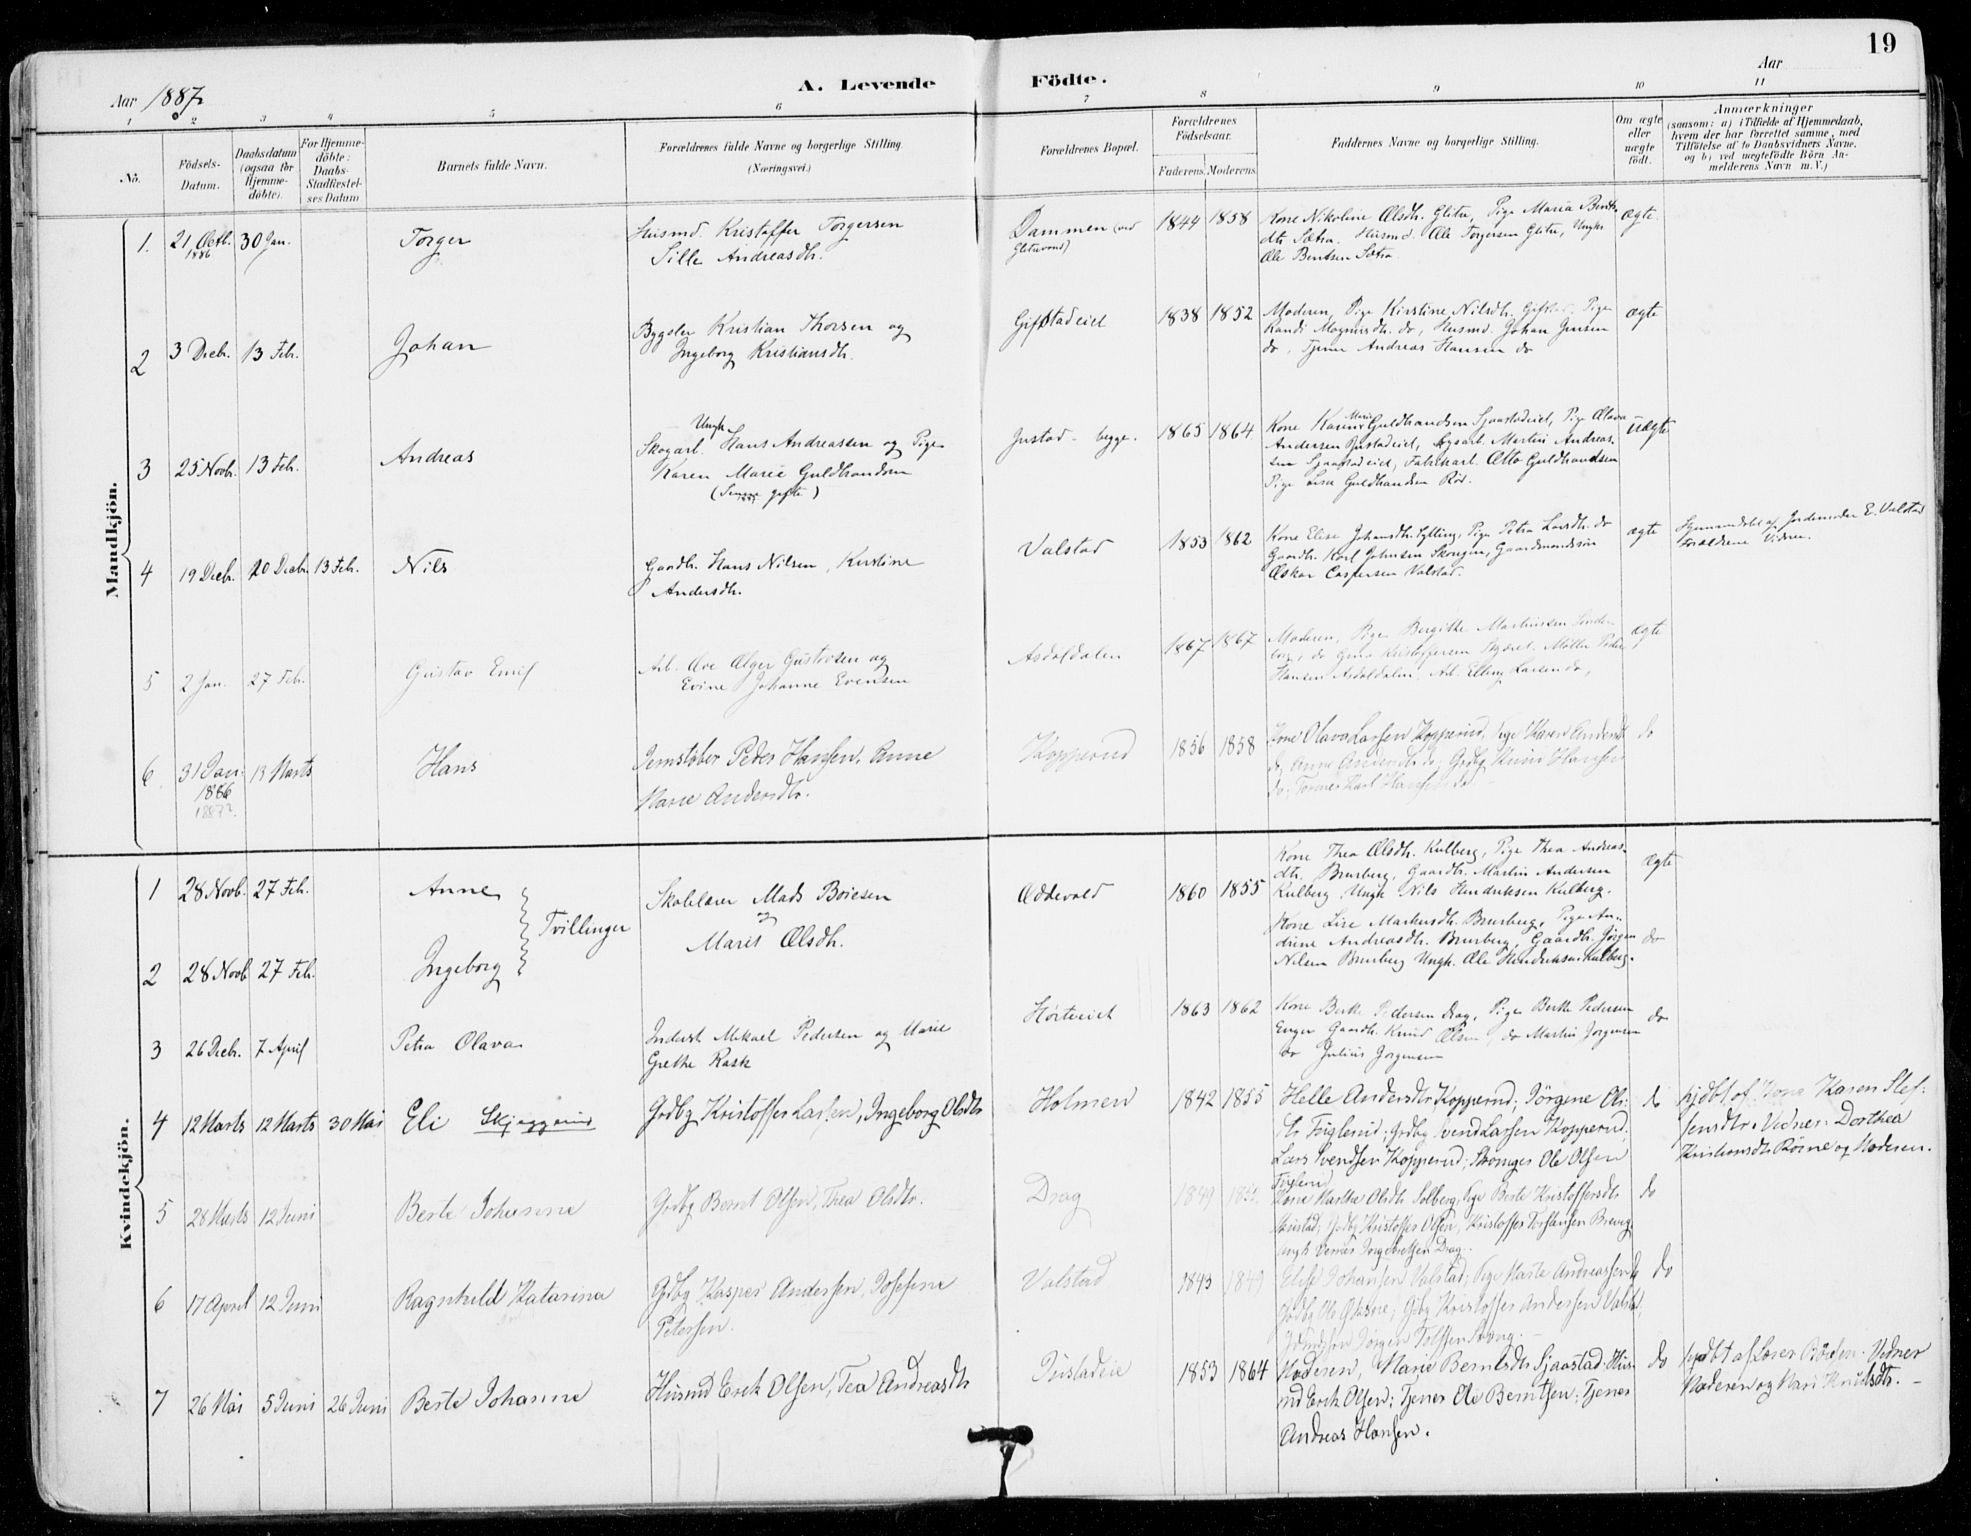 19
Aar 1887.
A. Levende Födte.
Aar
1 2 3 4 5 6 7 8 9 10 11
No.
Födsels-Datum.
Daabsdatum (ogsaa for Hjemme-döbte).
For Hjemme-döbte: Daabs-Stadfæstel-ses Datum
Barnets fulde Navn.
Forældrenes fulde Navne og borgerlige Stilling (Næringsvei.)
Forældrenes Bopæl.
Forældrenes Födselsaar.
Faderens. Moderens.
Faddernes Navne og borgerlige Stilling.
Om ægte eller uægte födt.
Anmærkninger
(saasom: a) i Tilfælde af Hjemmedaab,
hvem der har forrettet samme, med
Tilföielse af to Daabsvidners Navne,
og b) ved uægtefödte Börn An-
melderens Navn m.V.)
Mandkjön.
1. 21 Octb. 1886 30 Jan. Torger
Husmd. Kristoffer Torgersen
Sille Andreasdtr.
Dammen (ved Glitrevand) 1844 1858
Kone Nikoline Olsdtr. Glitre, Pige Maria Bents-
dtr. Sætra. Husmd. Ole Torgersen Glitre, Ungk.
Ole Bentsen Sætra
ægte
2 3 Decb. 13 Feb. Johan
Bygsler Kristian Thorsen og
Ingeborg Kristiansdtr.
Gifstadeiet 1838 1852
Moderen, Pige Kirstine Nilsdtr. Gifstad, Pige
Randi Mogensdtr. do, Husmd. Johan Jensen
do, Tjener Andreas Hansen do
ægte
3 25 Novb. 13 Feb. Andreas
Skogarb. Ungk. Hans Andreassen og Pige
Karen Marie Guldbrandsen
(Senere gifte)
Justad - begge. 1865 1864
Kone Karen Marie Guldbrandsen Sjaastadeiet, Pige Olava
Andersen Justadeiet, Martin Andreas-
sen Sjaastadeiet, Fabrikarb. Otto Guldbrandsen
Pige Lise Guldbrandsen Röd.
uægte
4 19 Decb. 20 Decb. 13 Feb. Nils
Gaardbr. Hans Nilsen, Kirstine
Andersdtr.
Valstad 1853 1862
Kone Elise Johansdtr. Sylling, Pige Petra Larsdtr. do
Gaardbr. Karl Johnsen Skougen, Gaardmandssön
Oskar Caspersen Valstad.
ægte
Hjemmedöbt af Jordemoder E. Valstad
Forældrene Vidner.
5 2 Jan. 27 Feb. Gustav Emil
Arb. Ove Olger Gustavsen og
Evine Johanne Evensen
Asdøldalen 1867 1867
Moderen, Pige Bergithe Martinssen
do Kristoffersen Møller Peder
Hansen Asdøldalen, Arb. Elling Larsen do,
ægte
6 31 Jan. 1886 1887? 13 Marts Hans
Jernstøber Peder Hansen, Anne
Marie Andersdtr.
Kopperud 1856 1858
Kone Olava Larsen Kopperud, Pige Karen Andersdtr
do, Anne Andersdtr do, Grdbg Knud Hansen
do, Tømmer Karl Hansen do
do
Kvindekjön.
1 28 Novb. 27 Feb. Anne
2 28 Novb 27 Feb. Ingeborg
Tvillinger
Skolelærer Mads Boiesen
og
Maris Olsdtr.
Oddevold 1860 1855
Kone Thea Olsdtr. Kulberg, Pige Thea Andreas-
dtr. Brurberg, Gaardbr. Martin Andersen
Kulberg, Ungk. Nils Hendriksen Kulberg.
ægte
Kone Lise Markusdtr. Brurberg, Pige An-
drine Andreasdtr. Brurberg, Gaardbr. Jörgen
Nilsen Brurberg Ungk. Ole Hendriksen Kulberg.
do
3 26 Decb. 7 April Petra Olava
Inderst Mikael Pedersen og Marie
Grethe Rask
Hörteeiet 1863 1862
Kone Berthe Pedersen Drag, Pige Berthe Pedersen
Enger Gaardbr. Knud Olsen, do Martin Jörgensen
do Julius Jorgensen
do
4 12 Marts 12 Marts 30 Mai Eli Skjeggerud
Grdbg Kristoffer Larsen, Ingeborg Olsdtr
Holmen 1842 1855
Helle Andersdtr Kopperud; Jörgine Ols-
dtr Fuglerud; Grdbg Svend Larsen Kopperud;
Lars Svendsen Kopperud; Ole Olsen
Fuglerud
do
hjdbt af Kone Karen Stef-
fensdtr. Vidner: Dorthea
Kristiansdtr Röine og Moderen.
5 28 Marts 12 Juni Berte Johanne
Grdbg Bernt Olsen, Thea Olsdtr.
Drag 1849
Kone Marthe Olsdtr Solberg, Pige Berte Kristoffersdtr
Justad; Grdbg Kristoffer Olsen, Kristoffer Torstensen Breivig
Ungk Verner Ingebretsen Drag.
do
6 17 April 12 Juni Ragnhild Katarina
Grdbg Kasper Andersen, Josefine
Petersen.
Valstad 1843 1849
Elise Johansen Valstad; Pige Marte Andreassen do
Grdbg Ole; Grdbg Kristoffer Andersen Valstad,
Jörgen
do
7 26 Mai 5 Juni 26 Juni Berte Johanne
Husmd Erik Olsen, Tea Andreasdtr
Justadeie 1853 1864
Moderen, Marie Berntsdtr Sjaastad; Hus-
md Erik Olsen; Tjener Ole Berntsen; Tjener
Andreas Hansen.
do
hjdbt af Lærer Boisen. Vidner
Moderen og Mari Knudsdtr.